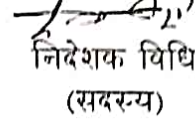 निदेशक विधि
(सदस्य)